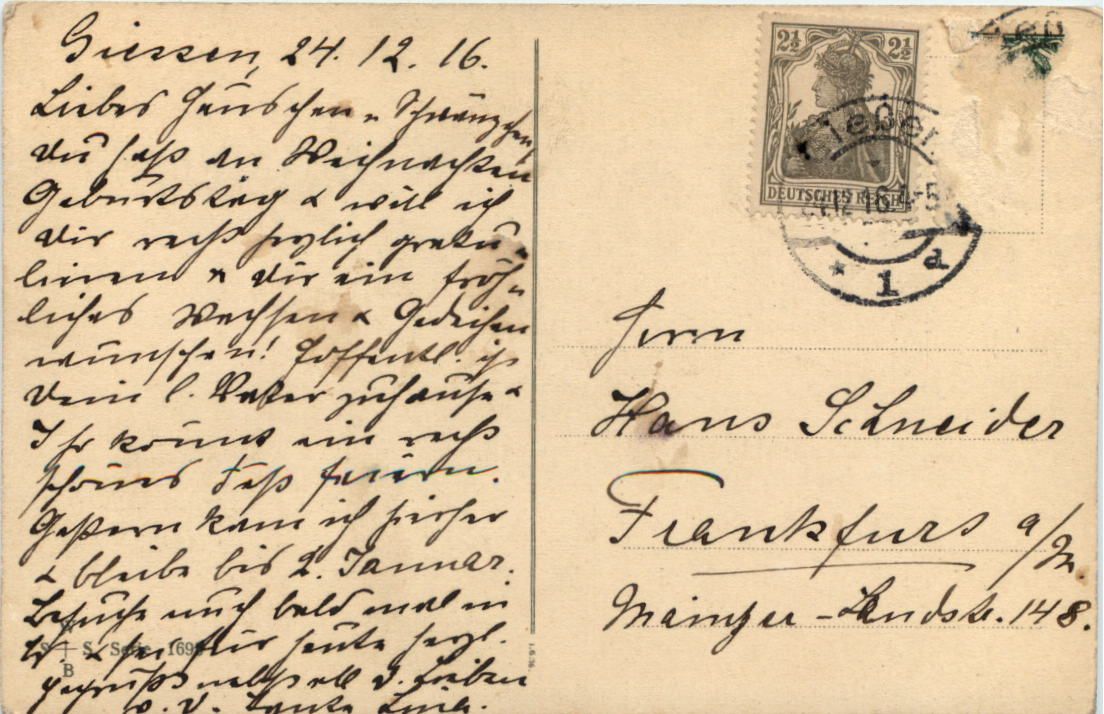 Giessen, 24. 12. 16.
Liebes Hänschen u. Schwänzchen,
Du hast an Weihnachten
Geburtstag & will ich
Dir recht herzlich gratu-
lieren & Dir ein fröh-
liches Wachsen & Gedeihen
wünschen! Hoffentl. ist
Dein l. Vater zuhause &
Ihr könnt ein recht
schönes Fest feiern.
Gestern kam ich hierher
& bleibe bis 2. Januar.
Besuche mich bald mal in
& sei für heute herzl.
gegrüsst nebst all d. Lieben
v. D. Tante Lina.
S S. Serie 169
B
2½ 2½
DEUTSCHES REICH
Gießen
16. 4-5
* 1 d
Herrn
Hans Schneider
Frankfurt a/M.
Mainzer-Landstr. 148.